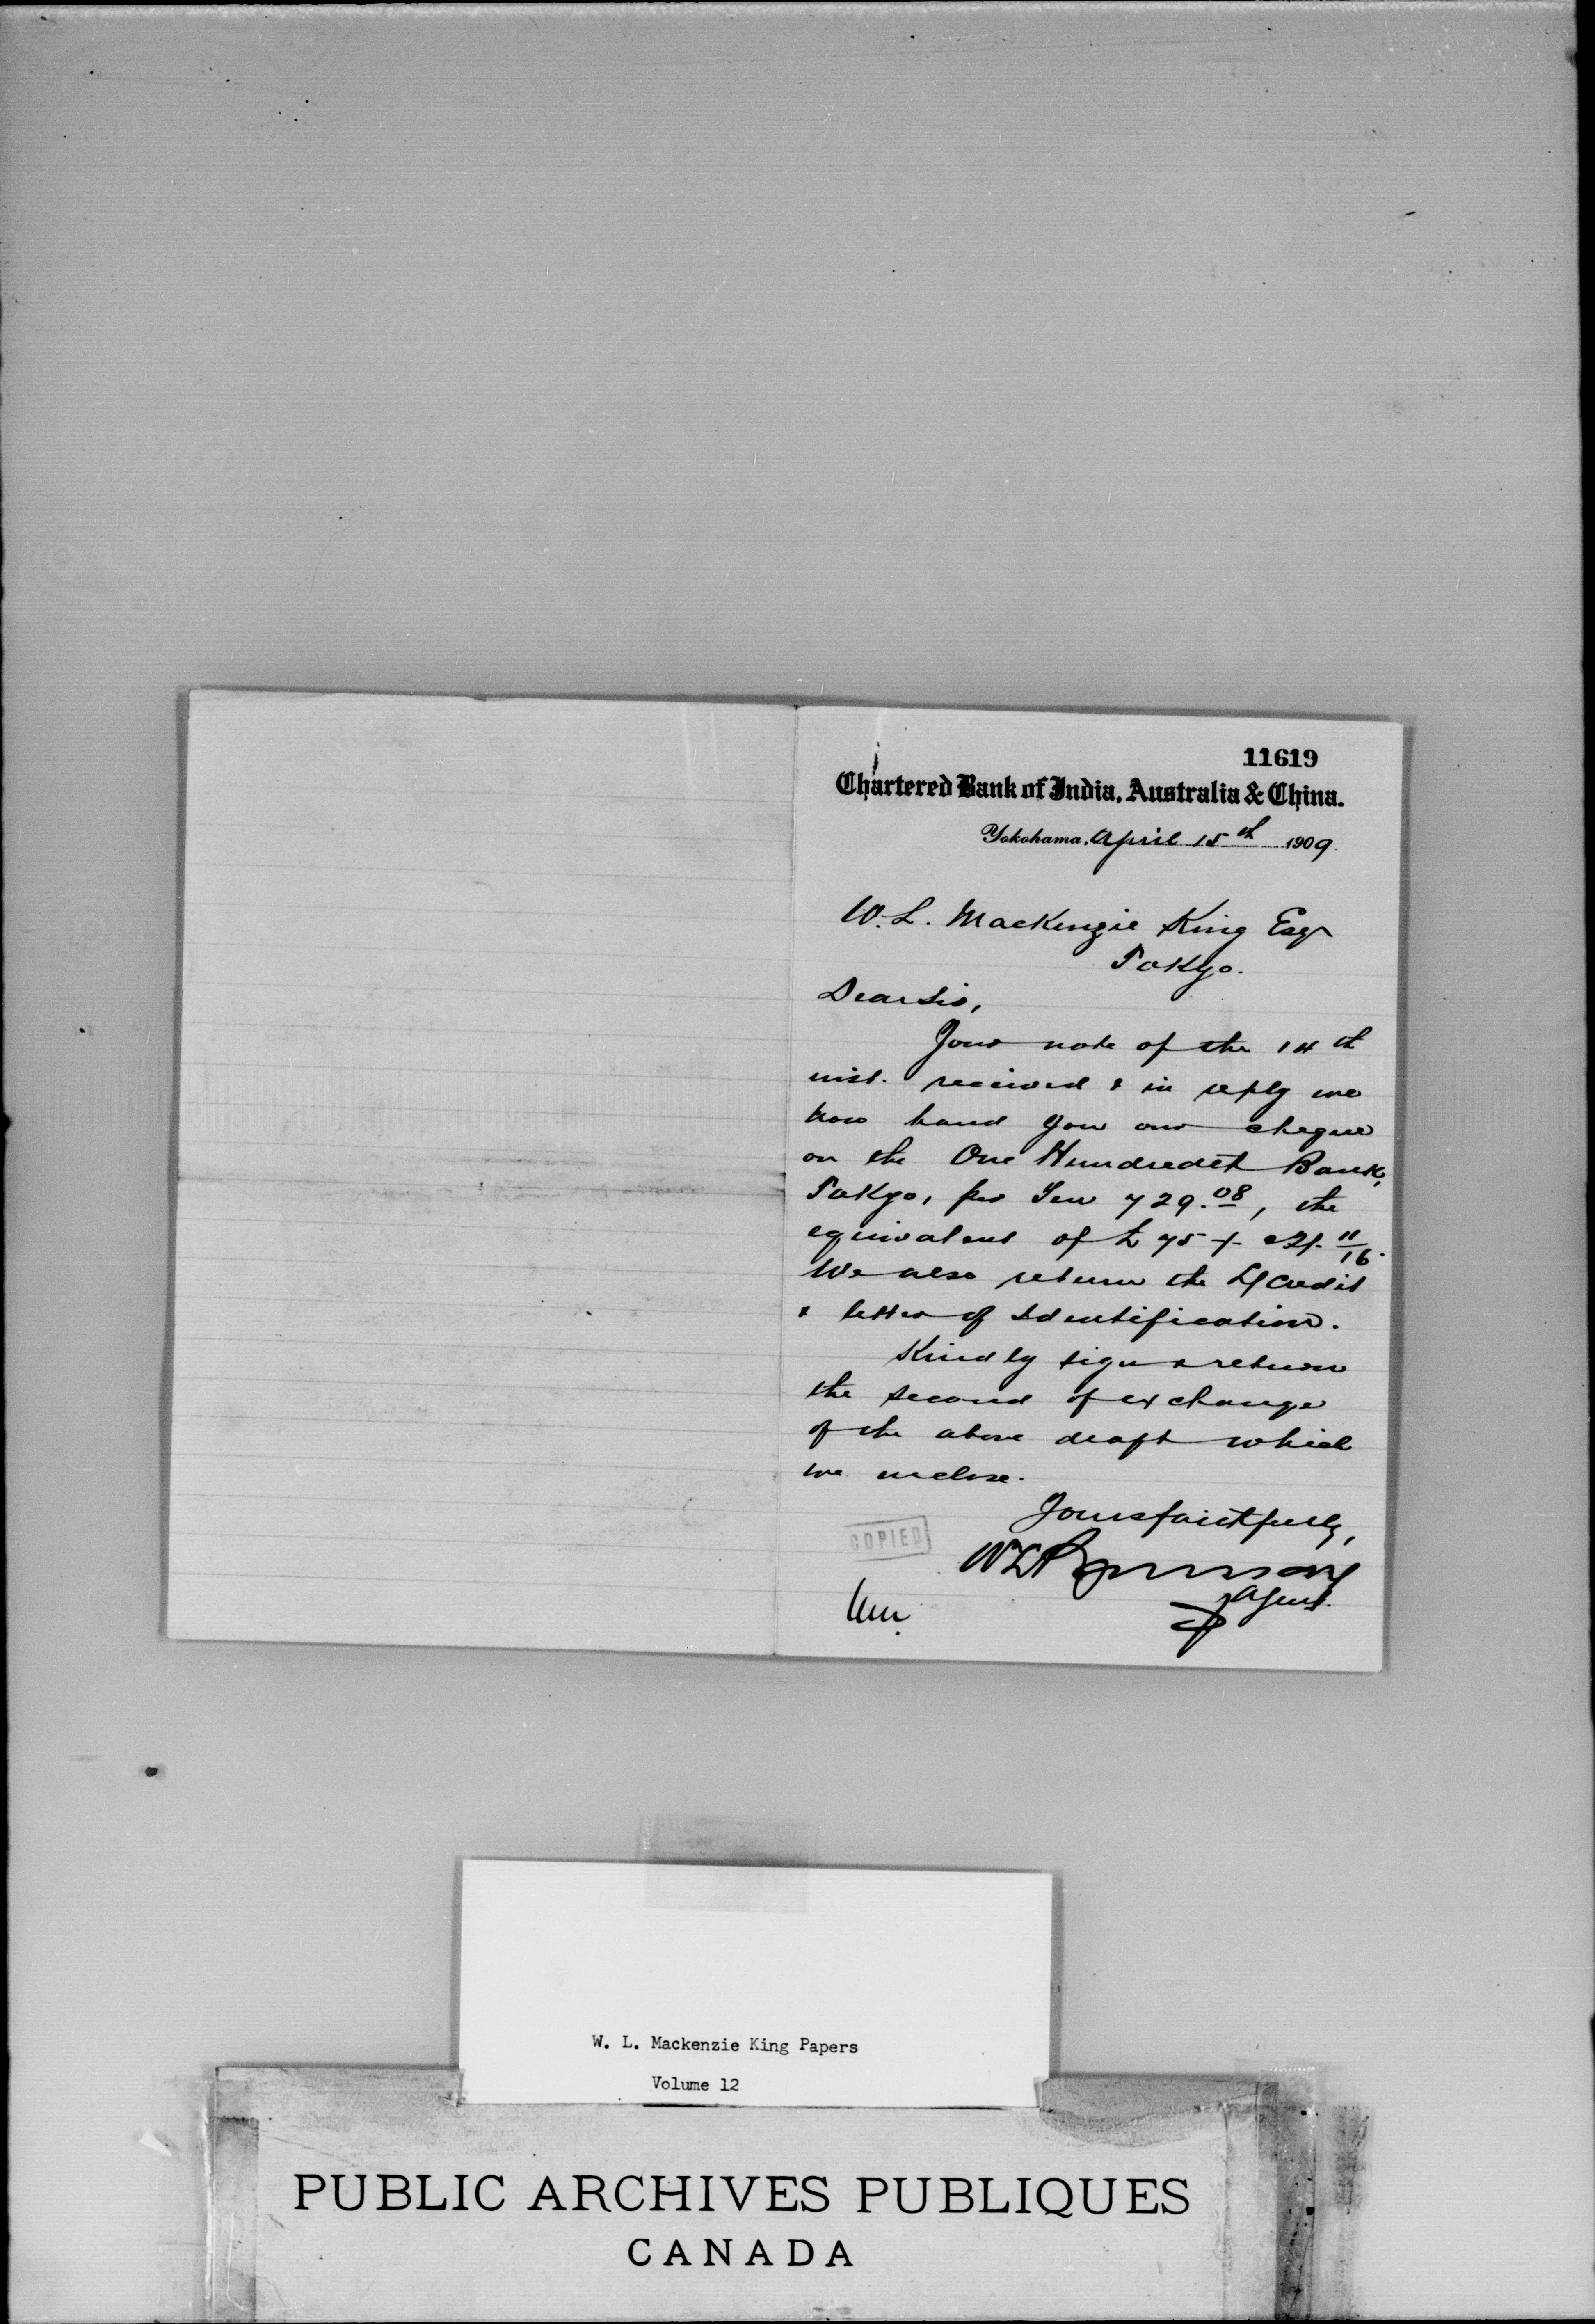 11619
Chartered Bank of India, Australia & China.
Yokohama, April 15th 1909.
W. L. MacKenzie King Esqr
Tokyo.
Dear Sir,
Your note of the 14th
inst. received & in reply we
now hand you our cheque
on the One Hundredth Bank,
Tokyo, for Yen 729.08, the
equivalent of £75-/- @ 2/- 11/16.
We also return the L/Credit
& letter of Identification.
Kindly sign & return
the second of exchange
of the above draft which
we enclose.
Yours faithfully,
COPIED
Agent.
W. L. Mackenzie King Papers
Volume 12
PUBLIC ARCHIVES PUBLIQUES
CANADA